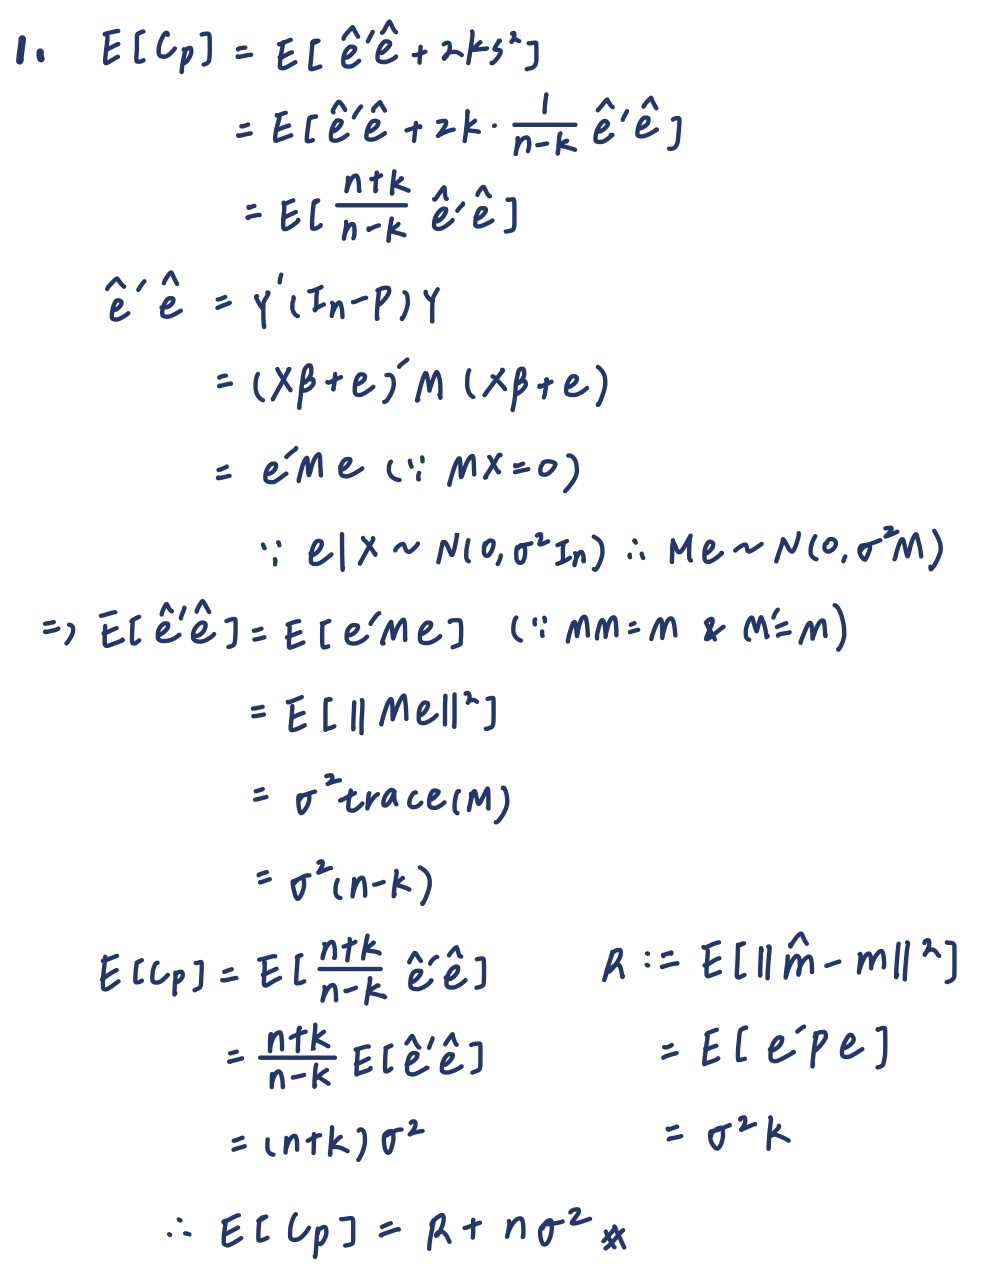 1. E[Cp] = E[ê′ê + 2ks²]
= E[ê′ê + 2k · 1/(n-k) ê′ê]
= E[(n+k)/(n-k) ê′ê]
ê′ê = Y′(In-P)Y
= (Xβ+e)′M(Xβ+e)
= e′Me (∵ MX=0)
∵ e|X ~ N(0, σ²In) ∴ Me ~ N(0, σ²M)
=> E[ê′ê] = E[e′Me] (∵ MM=M & M′=M)
= E[||Me||²]
= σ²trace(M)
= σ²(n-k)
E[Cp] = E[(n+k)/(n-k) ê′ê]
= (n+k)/(n-k) E[ê′ê]
= (n+k)σ²
R := E[||m̂ - m||²]
= E[e′Pe]
= σ²k
∴ E[Cp] = R + nσ² #